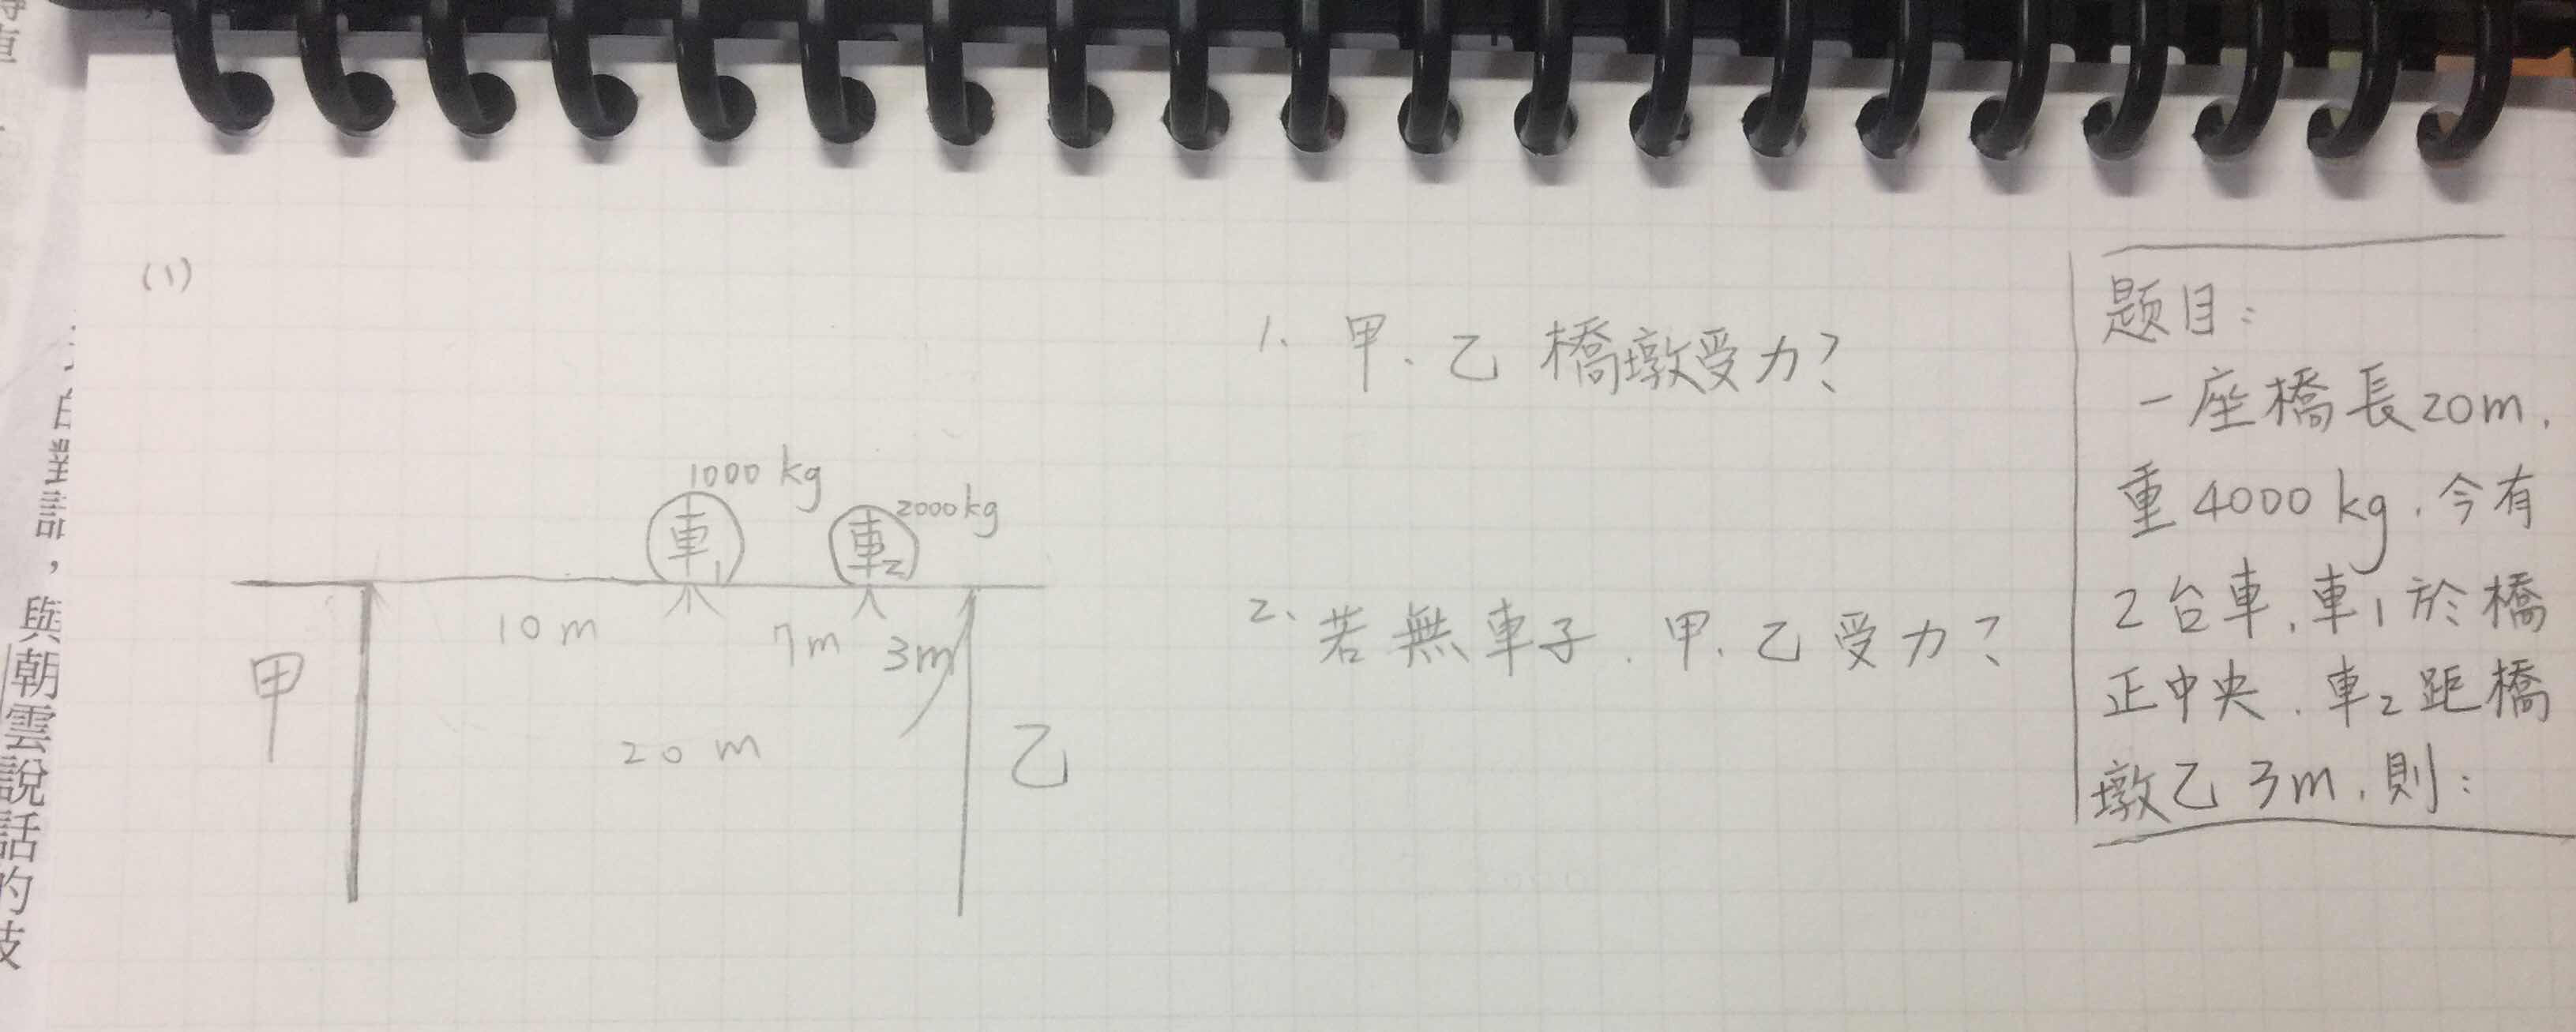 (1)
1、甲、乙橋墩受力?
2、若無車子、甲、乙受力?
1000 kg
2000kg
車1
車2
10 m
7m
3m
20 m
甲
乙
題目:
一座橋長20m,
重4000 kg,今有
2台車,車1於橋
正中央,車2距橋
墩乙3m,則:
與朝雲說話的技